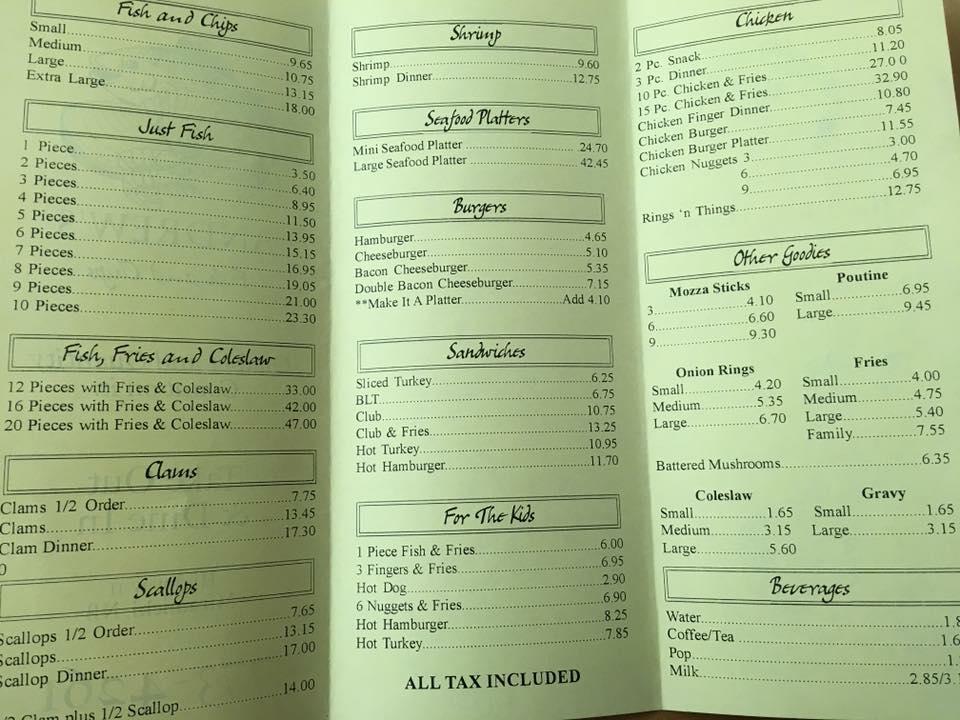 Fish and Chips
Small..........9.65
Medium..........10.75
Large..........13.15
Extra Large..........18.00
Just Fish
1 Piece..........3.50
2 Pieces..........6.40
3 Pieces..........8.95
4 Pieces..........11.50
5 Pieces..........13.95
6 Pieces..........15.15
7 Pieces..........16.95
8 Pieces..........19.05
9 Pieces..........21.00
10 Pieces..........23.30
Fish, Fries and Coleslaw
12 Pieces with Fries & Coleslaw..........33.00
16 Pieces with Fries & Coleslaw..........42.00
20 Pieces with Fries & Coleslaw..........47.00
Clams
Clams 1/2 Order..........7.75
Clams..........13.45
Clam Dinner..........17.30
0
Scallops
Scallops 1/2 Order..........7.65
Scallops..........13.15
Scallop Dinner..........17.00
Clam plus 1/2 Scallop..........14.00
Shrimp
Shrimp..........9.60
Shrimp Dinner..........12.75
Seafood Platters
Mini Seafood Platter..........24.70
Large Seafood Platter..........42.45
Burgers
Hamburger..........4.65
Cheeseburger..........5.10
Bacon Cheeseburger..........5.35
Double Bacon Cheeseburger..........7.15
**Make It A Platter..........Add 4.10
Sandwiches
Sliced Turkey..........6.25
BLT..........6.75
Club..........10.75
Club & Fries..........13.25
Hot Turkey..........10.95
Hot Hamburger..........11.70
For The Kids
1 Piece Fish & Fries..........6.00
3 Fingers & Fries..........6.95
Hot Dog..........2.90
6 Nuggets & Fries..........6.90
Hot Hamburger..........8.25
Hot Turkey..........7.85
ALL TAX INCLUDED
Chicken
2 Pc. Snack..........8.05
3 Pc. Dinner..........11.20
10 Pc. Chicken & Fries..........27.0 0
15 Pc. Chicken & Fries..........32.90
Chicken Finger Dinner..........10.80
Chicken Burger..........7.45
Chicken Burger Platter..........11.55
Chicken Nuggets 3..........3.00
6..........4.70
9..........6.95
Rings 'n Things..........12.75
Other Goodies
Mozza Sticks
3..........4.10
6..........6.60
9..........9.30
Poutine
Small..........6.95
Large..........9.45
Onion Rings
Small..........4.20
Medium..........5.35
Large..........6.70
Fries
Small..........4.00
Medium..........4.75
Large..........5.40
Family..........7.55
Battered Mushrooms..........6.35
Coleslaw
Small..........1.65
Medium..........3.15
Large..........5.60
Gravy
Small..........1.65
Large..........3.15
Beverages
Water..........1.8
Coffee/Tea..........1.6
Pop..........1.
Milk..........2.85/3.1